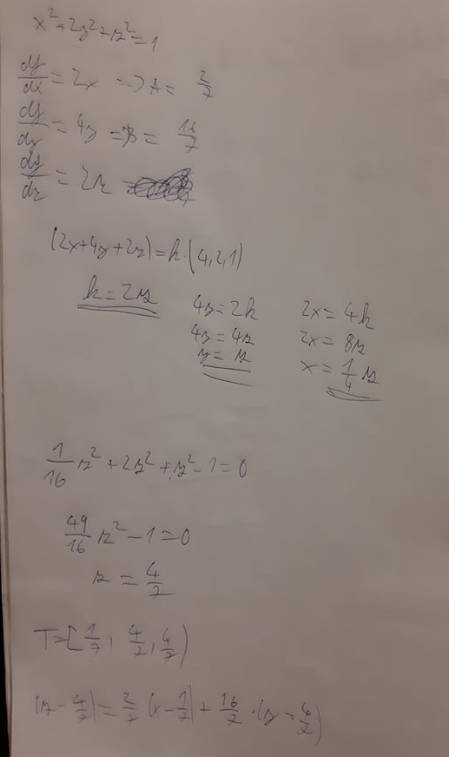 x²+2y²+z²=1
dy/dx = 2x → A = 2/7
dy/dy = 4y ⇒ B = 16/7
dy/dz = 2z
(2x+4y+2z)=k·(4,2,1)
k=2z
4y=2k 2x=4k
4y=4z 2x=8z
y=z x=1/4 z
1/16 z²+2z²+z²-1=0
49/16 z²-1=0
z=4/7
T=[1/7, 4/7, 4/7)
(z-4/7)=2/7 (x-1/7)+16/7·(y-4/7)